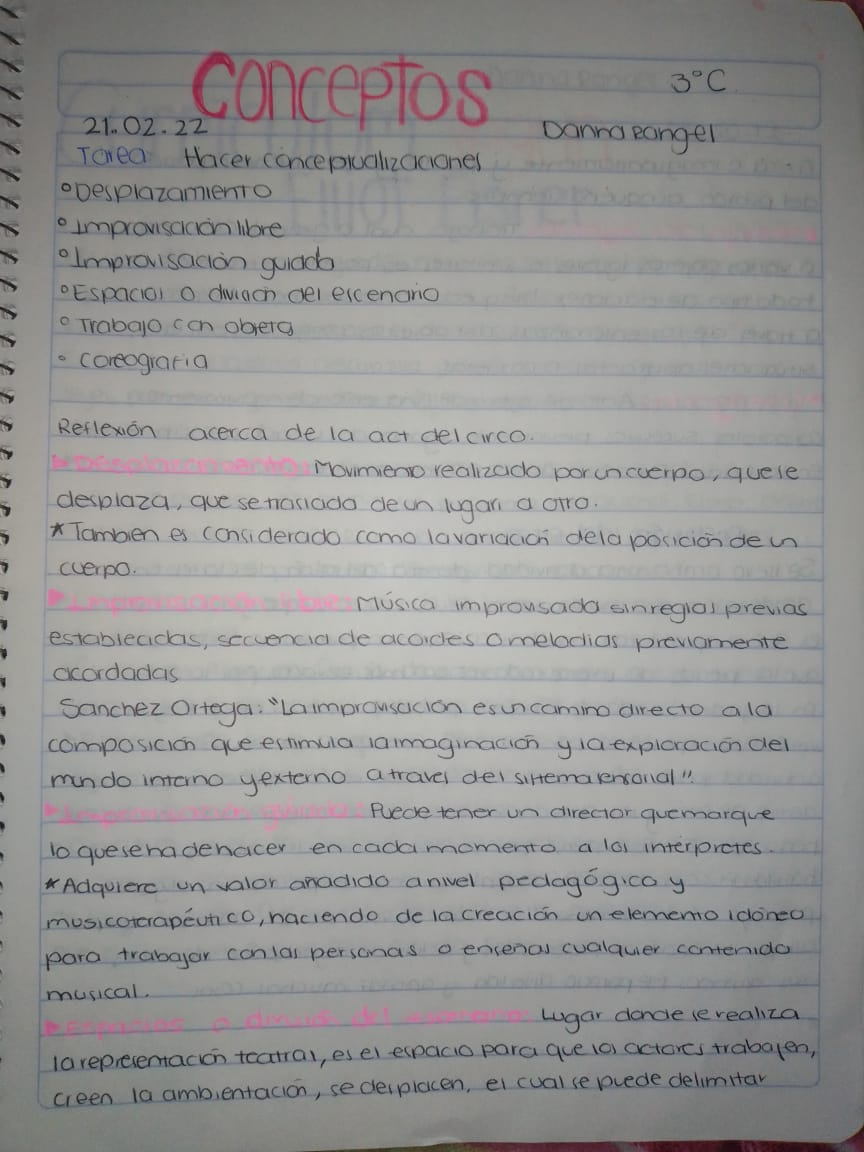 Conceptos
3°C
21.02.22
Danna Rangel
Tarea: Hacer conceptualizaciones
°Desplazamiento
°Improvisación libre
°Improvisación guiada
°Espacios o división del escenario
°Trabajo con objeto
°Coreografia
Reflexión acerca de la act del circo.
▸Desplazamiento: Movimiento realizado por un cuerpo, que se
desplaza, que se traslada de un lugar a otro.
*Tambien es considerado como la variación de la posición de un
cuerpo.
▸Improvisación libre: Música improvisada sin reglas previas
establecidas, secuencia de acordes o melodias previamente
acordadas
Sanchez Ortega: "La improvisación es un camino directo a la
composición que estimula la imaginación y la exploración del
mundo interno y externo a travel del sistema sensorial".
▸Improvisación guiada: Puede tener un director que marque
lo que se ha de hacer en cada momento a los intérpretes.
*Adquiere un valor añadido a nivel pedagógico y
musicoterapéutico, haciendo de la creación un elemento idóneo
para trabajar con las personas o enseñas cualquier contenido
musical.
▸Espacios o división del escenario: Lugar donde se realiza
la representación teatral, es el espacio para que los actores trabajen,
creen la ambientación, se desplacen, el cual se puede delimitar